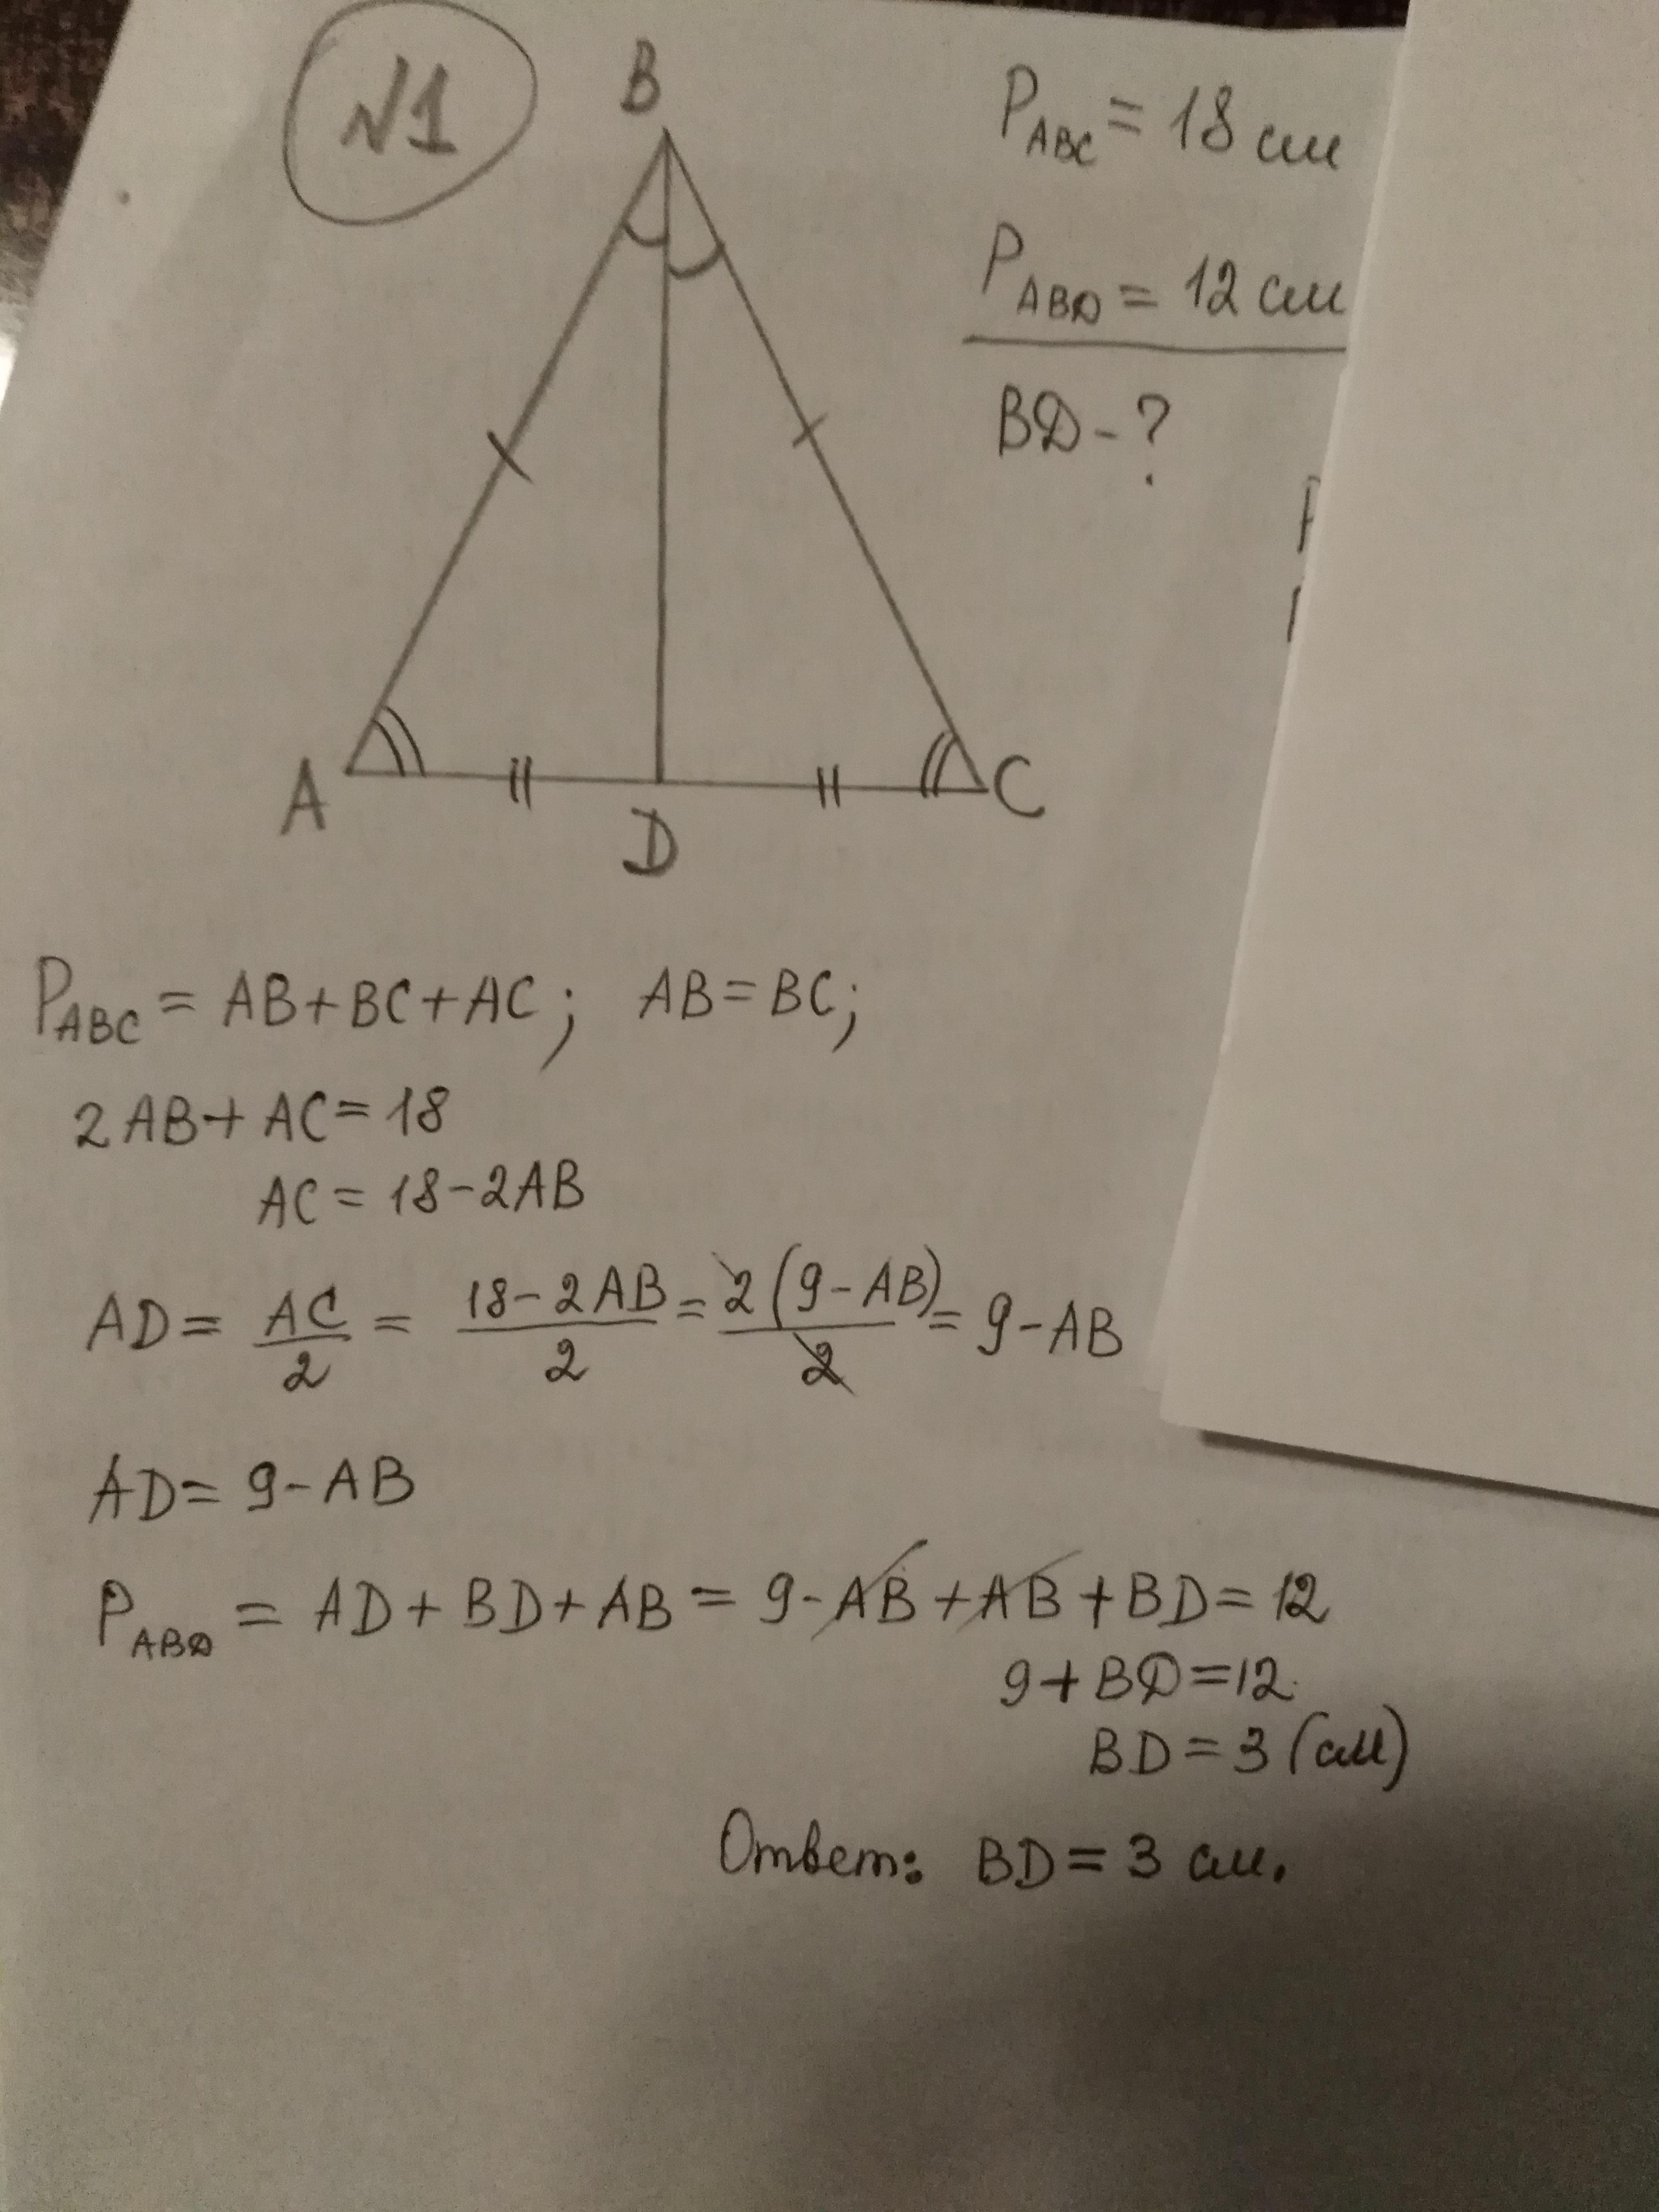 N1
B
P_ABC = 18 см
P_ABD = 12 см
BD - ?
A
D
C
P_ABC = AB + BC + AC; AB = BC;
2AB + AC = 18
AC = 18 - 2AB
AD = AC/2 = (18 - 2AB)/2 = 2(9 - AB)/2 = 9 - AB
AD = 9 - AB
P_ABD = AD + BD + AB = 9 - AB + AB + BD = 12
9 + BD = 12
BD = 3 (см)
Ответ: BD = 3 см.